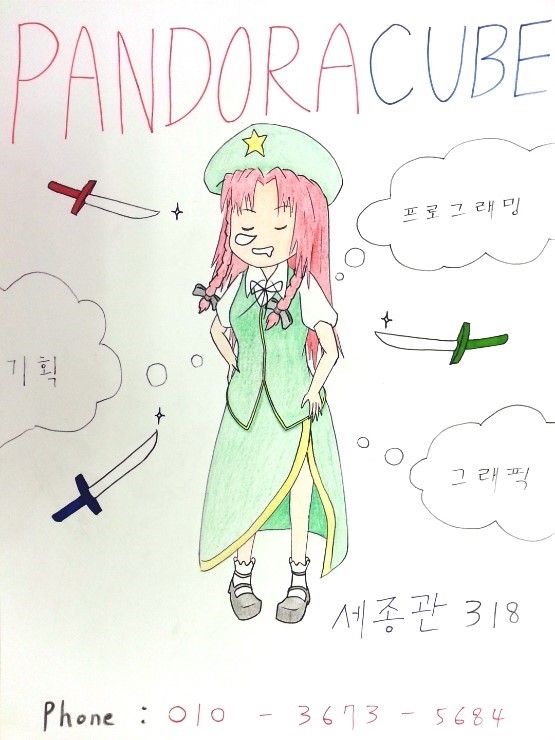 PANDORACUBE
프로그래밍
기획
그래픽
세종관 318
Phone : 010 - 3673 - 5684